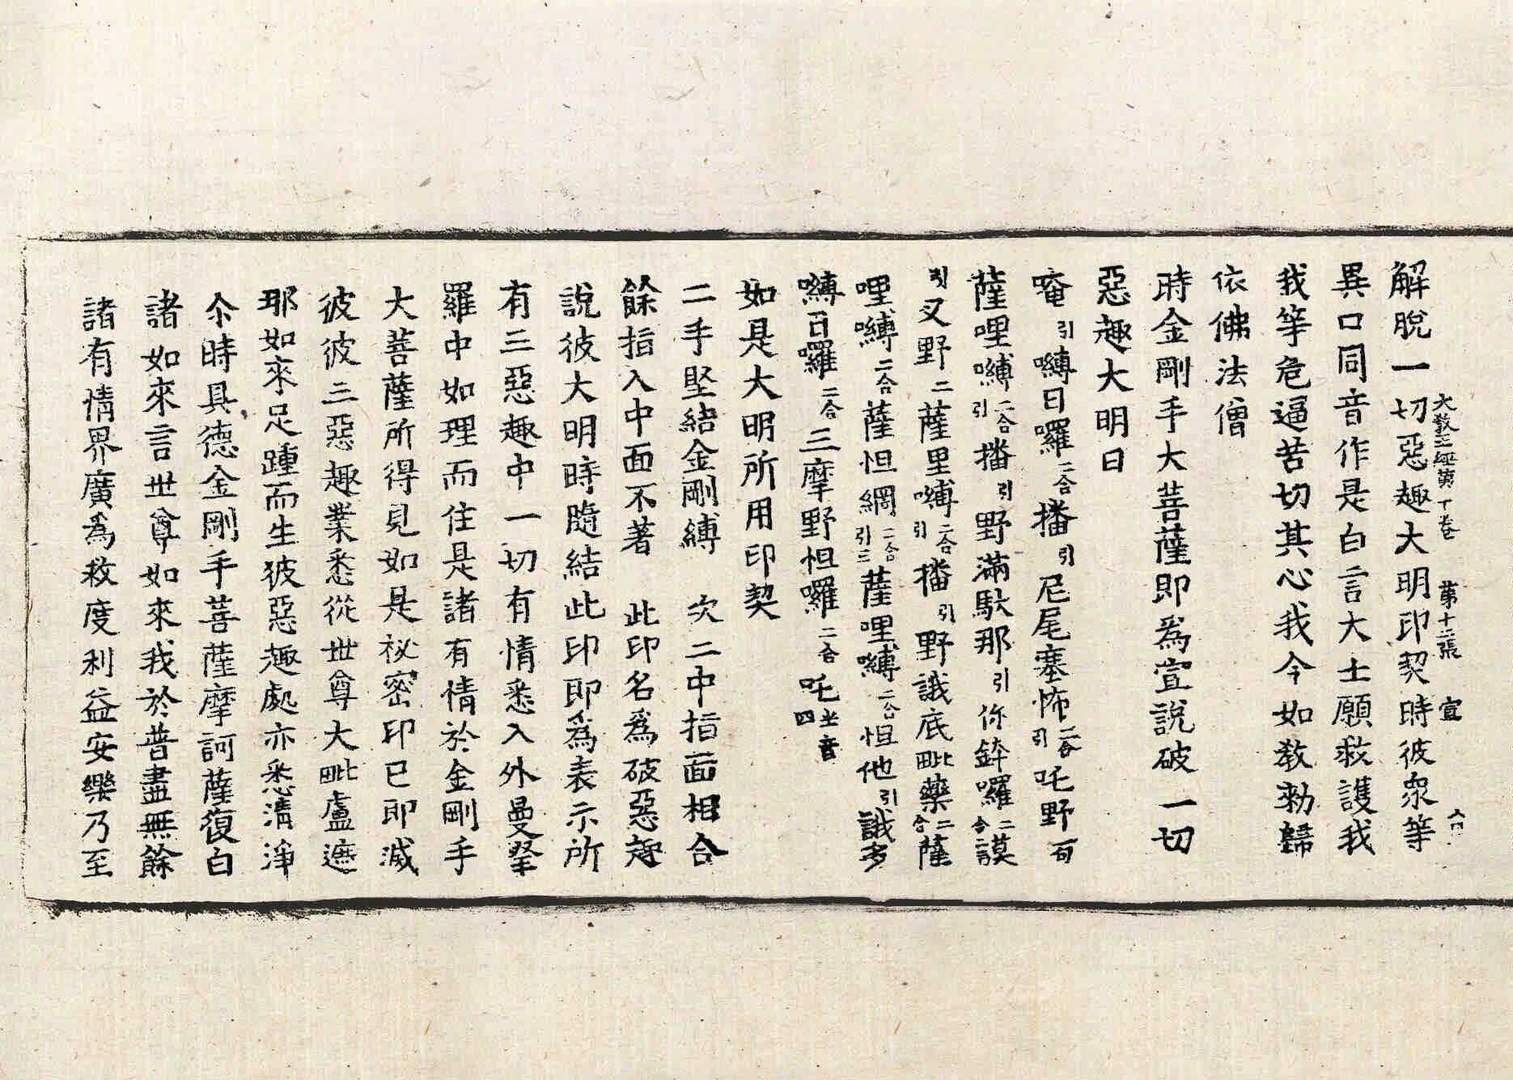 大教王經第十卷　第十二張　宣
解脫一切惡趣大明印契時彼衆等
異口同音作是白言大士願救護我
我等危逼苦切其心我今如教勑歸
依佛法僧
時金剛手大菩薩即爲宣說破一切
惡趣大明曰
唵引嚩日囉二合播引尼尾塞怖二合引吒野句
薩哩嚩二合引播引野滿馱那引你鉢囉二合謨
引叉野二薩里嚩二合引播引野誐底毗藥二合薩
哩嚩二合薩怛網二合引三薩哩嚩二合怛他引誐多
嚩日囉二合三摩野怛囉二合吒半音四
如是大明所用印契
二手堅結金剛縛　次二中指面相合
餘指入中面不著　此印名爲破惡趣
說彼大明時隨結此印即爲表示所
有三惡趣中一切有情悉入外曼拏
羅中如理而住是諸有情於金剛手
大菩薩所得見如是祕密印已即滅
彼彼三惡趣業悉從世尊大毗盧遮
那如來足踵而生彼惡趣處亦悉清淨
尒時具德金剛手菩薩摩訶薩復白
諸如來言世尊如來我於普盡無餘
諸有情界廣爲救度利益安樂乃至